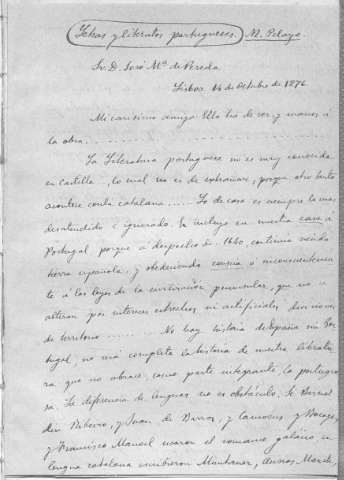 Letras y literatos portugueses. M. Pelayo
Sr. D. José Mª de Pereda
Lisboa 14 de Octubre de 1876
Mi carísimo amigo: Ello ha de ser, y manos á
la obra..........
La Literatura portuguesa no es muy conocida
en Castilla, lo cual no es de extrañar, porque otro tanto
acontece con la catalana....... Lo de casa es siempre lo más
desatendido é ignorado. Y incluyo en nuestra casa á
Portugal porque á despecho de 1640, continúa siendo
tierra española, y obedeciendo á inconsciente
te á las leyes de la civilización peninsular, que no se
alteran por intereses estrechos ni artificiales divisiones
de territorio......... No hay historia de España sin Por
tugal, no será completa la historia de nuestra literatu
ra que no abrace, como parte integrante, la portugue
sa. La diferencia de lenguas no es obstáculo. Si Bernal
din Ribeiro, y Juan de Barros, y Camoens y Bocage,
y Francisco Manoel usaron el romance galaico, en
lengua catalana escribieron Muntaner, Ausias March,